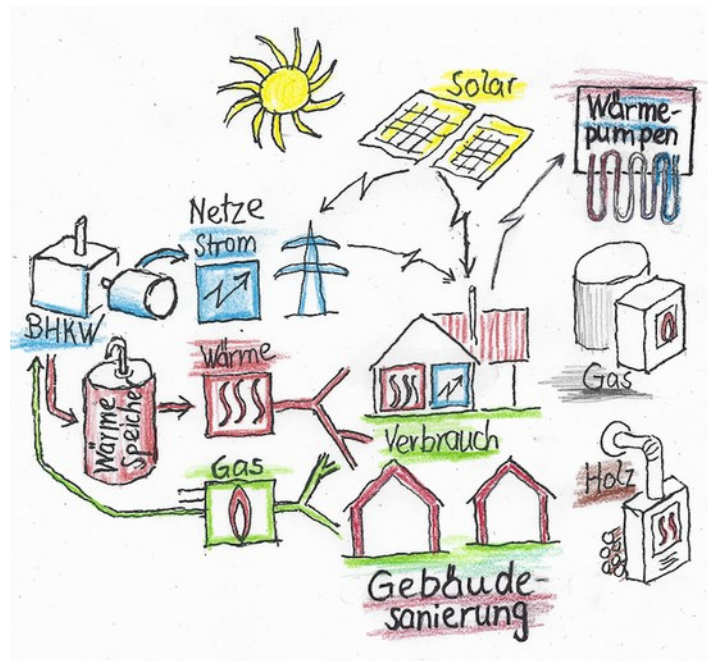 Solar
Wärme-
pumpen
Netze
Strom
BHKW
Wärme
Wärme
Speicher
Gas
Verbrauch
Gas
Holz
Gebäude-
sanierung